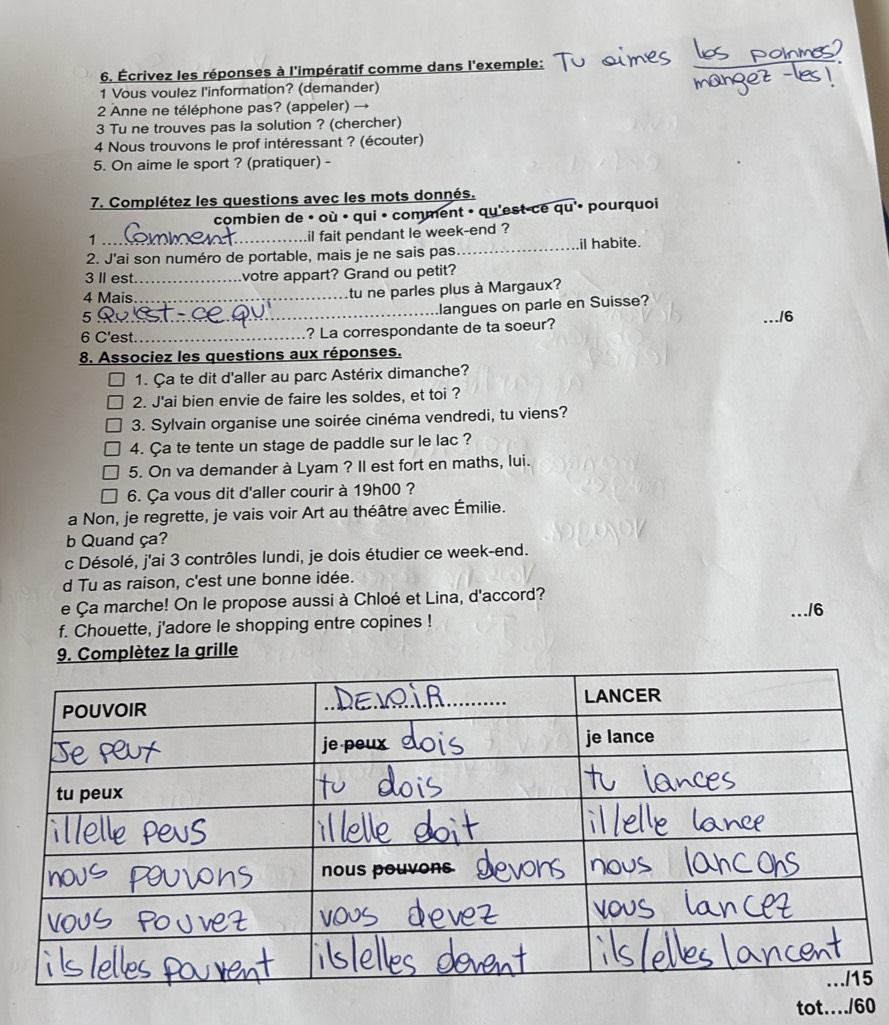 6. Écrivez les réponses à l'impératif comme dans l'exemple: Tu aimes les pommes?
mangez-les!
1 Vous voulez l'information? (demander)
2 Anne ne téléphone pas? (appeler) →
3 Tu ne trouves pas la solution ? (chercher)
4 Nous trouvons le prof intéressant ? (écouter)
5. On aime le sport ? (pratiquer) -
7. Complétez les questions avec les mots donnés.
combien de • où • qui • comment • qu'est-ce qu'• pourquoi
1 ....Comment..............il fait pendant le week-end ?
2. J'ai son numéro de portable, mais je ne sais pas........................il habite.
3 Il est......................votre appart? Grand ou petit?
4 Mais...........................................tu ne parles plus à Margaux?
5 Qu'est-ce qu'..................................langues on parle en Suisse?
6 C'est..................................? La correspondante de ta soeur?
.../6
8. Associez les questions aux réponses.
1. Ça te dit d'aller au parc Astérix dimanche?
2. J'ai bien envie de faire les soldes, et toi ?
3. Sylvain organise une soirée cinéma vendredi, tu viens?
4. Ça te tente un stage de paddle sur le lac ?
5. On va demander à Lyam ? Il est fort en maths, lui.
6. Ça vous dit d'aller courir à 19h00 ?
a Non, je regrette, je vais voir Art au théâtre avec Émilie.
b Quand ça?
c Désolé, j'ai 3 contrôles lundi, je dois étudier ce week-end.
d Tu as raison, c'est une bonne idée.
e Ça marche! On le propose aussi à Chloé et Lina, d'accord?
f. Chouette, j'adore le shopping entre copines !
.../6
9. Complètez la grille
POUVOIR ..DEVOIR........... LANCER
Je peux je peux dois je lance
tu peux tu dois tu lances
il/elle peus il/elle doit il/elle lance
nous pouvons nous pouvons devons nous lancons
vous pouvez vous devez vous lancez
ils/elles pauvent ils/elles devent ils/elles lancent
.../15
tot..../60